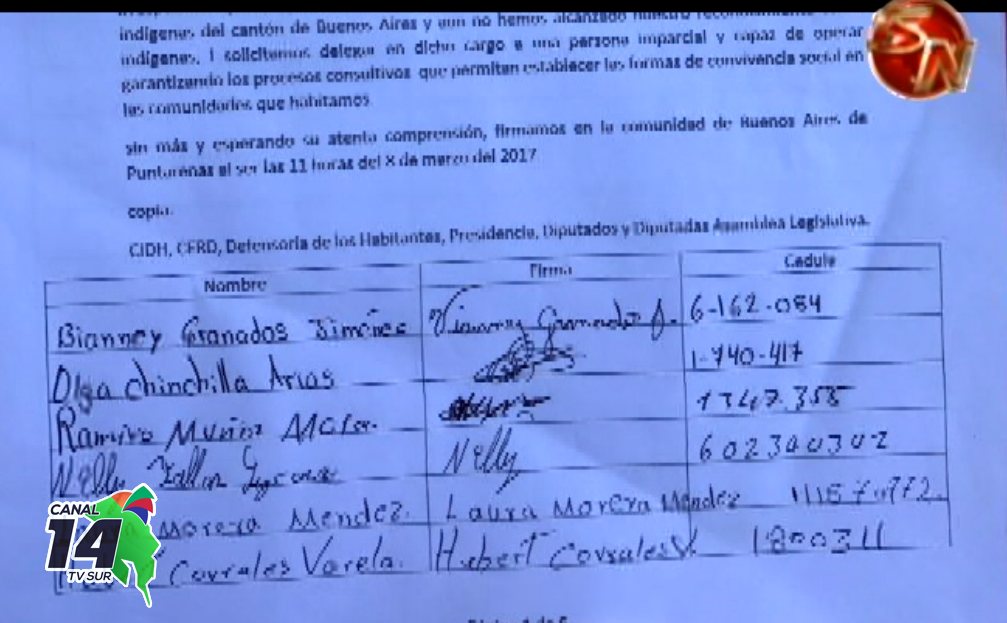 indígenas del cantón de Buenos Aires y aun no hemos alcanzado nuestro
indígenas. I solicitamos delegar en dicho cargo a una persona imparcial y capaz de operar
garantizando los procesos consultivos que permitan establecer las formas de convivencia social en
las comunidades que habitamos
sin más y esperando su atenta comprensión, firmamos en la comunidad de Buenos Aires de
Puntarenas al ser las 11 horas del 8 de marzo del 2017
copia.
CIDH, CERD, Defensoría de los Habitantes, Presidencia, Diputados y Diputadas Asamblea Legislativa.
Nombre Firma Cedula
Bianney Granados Jiménez Vianney Granados J. 6-162-084
Olga Chinchilla Arias 1-740-417
Ramiro Muñoz
Nelly Nelly 602340302
Morera Mendez. Laura Morera Méndez
Corrales Varela. Hubert Corrales V. 1800311
SN
CANAL
14
TV SUR